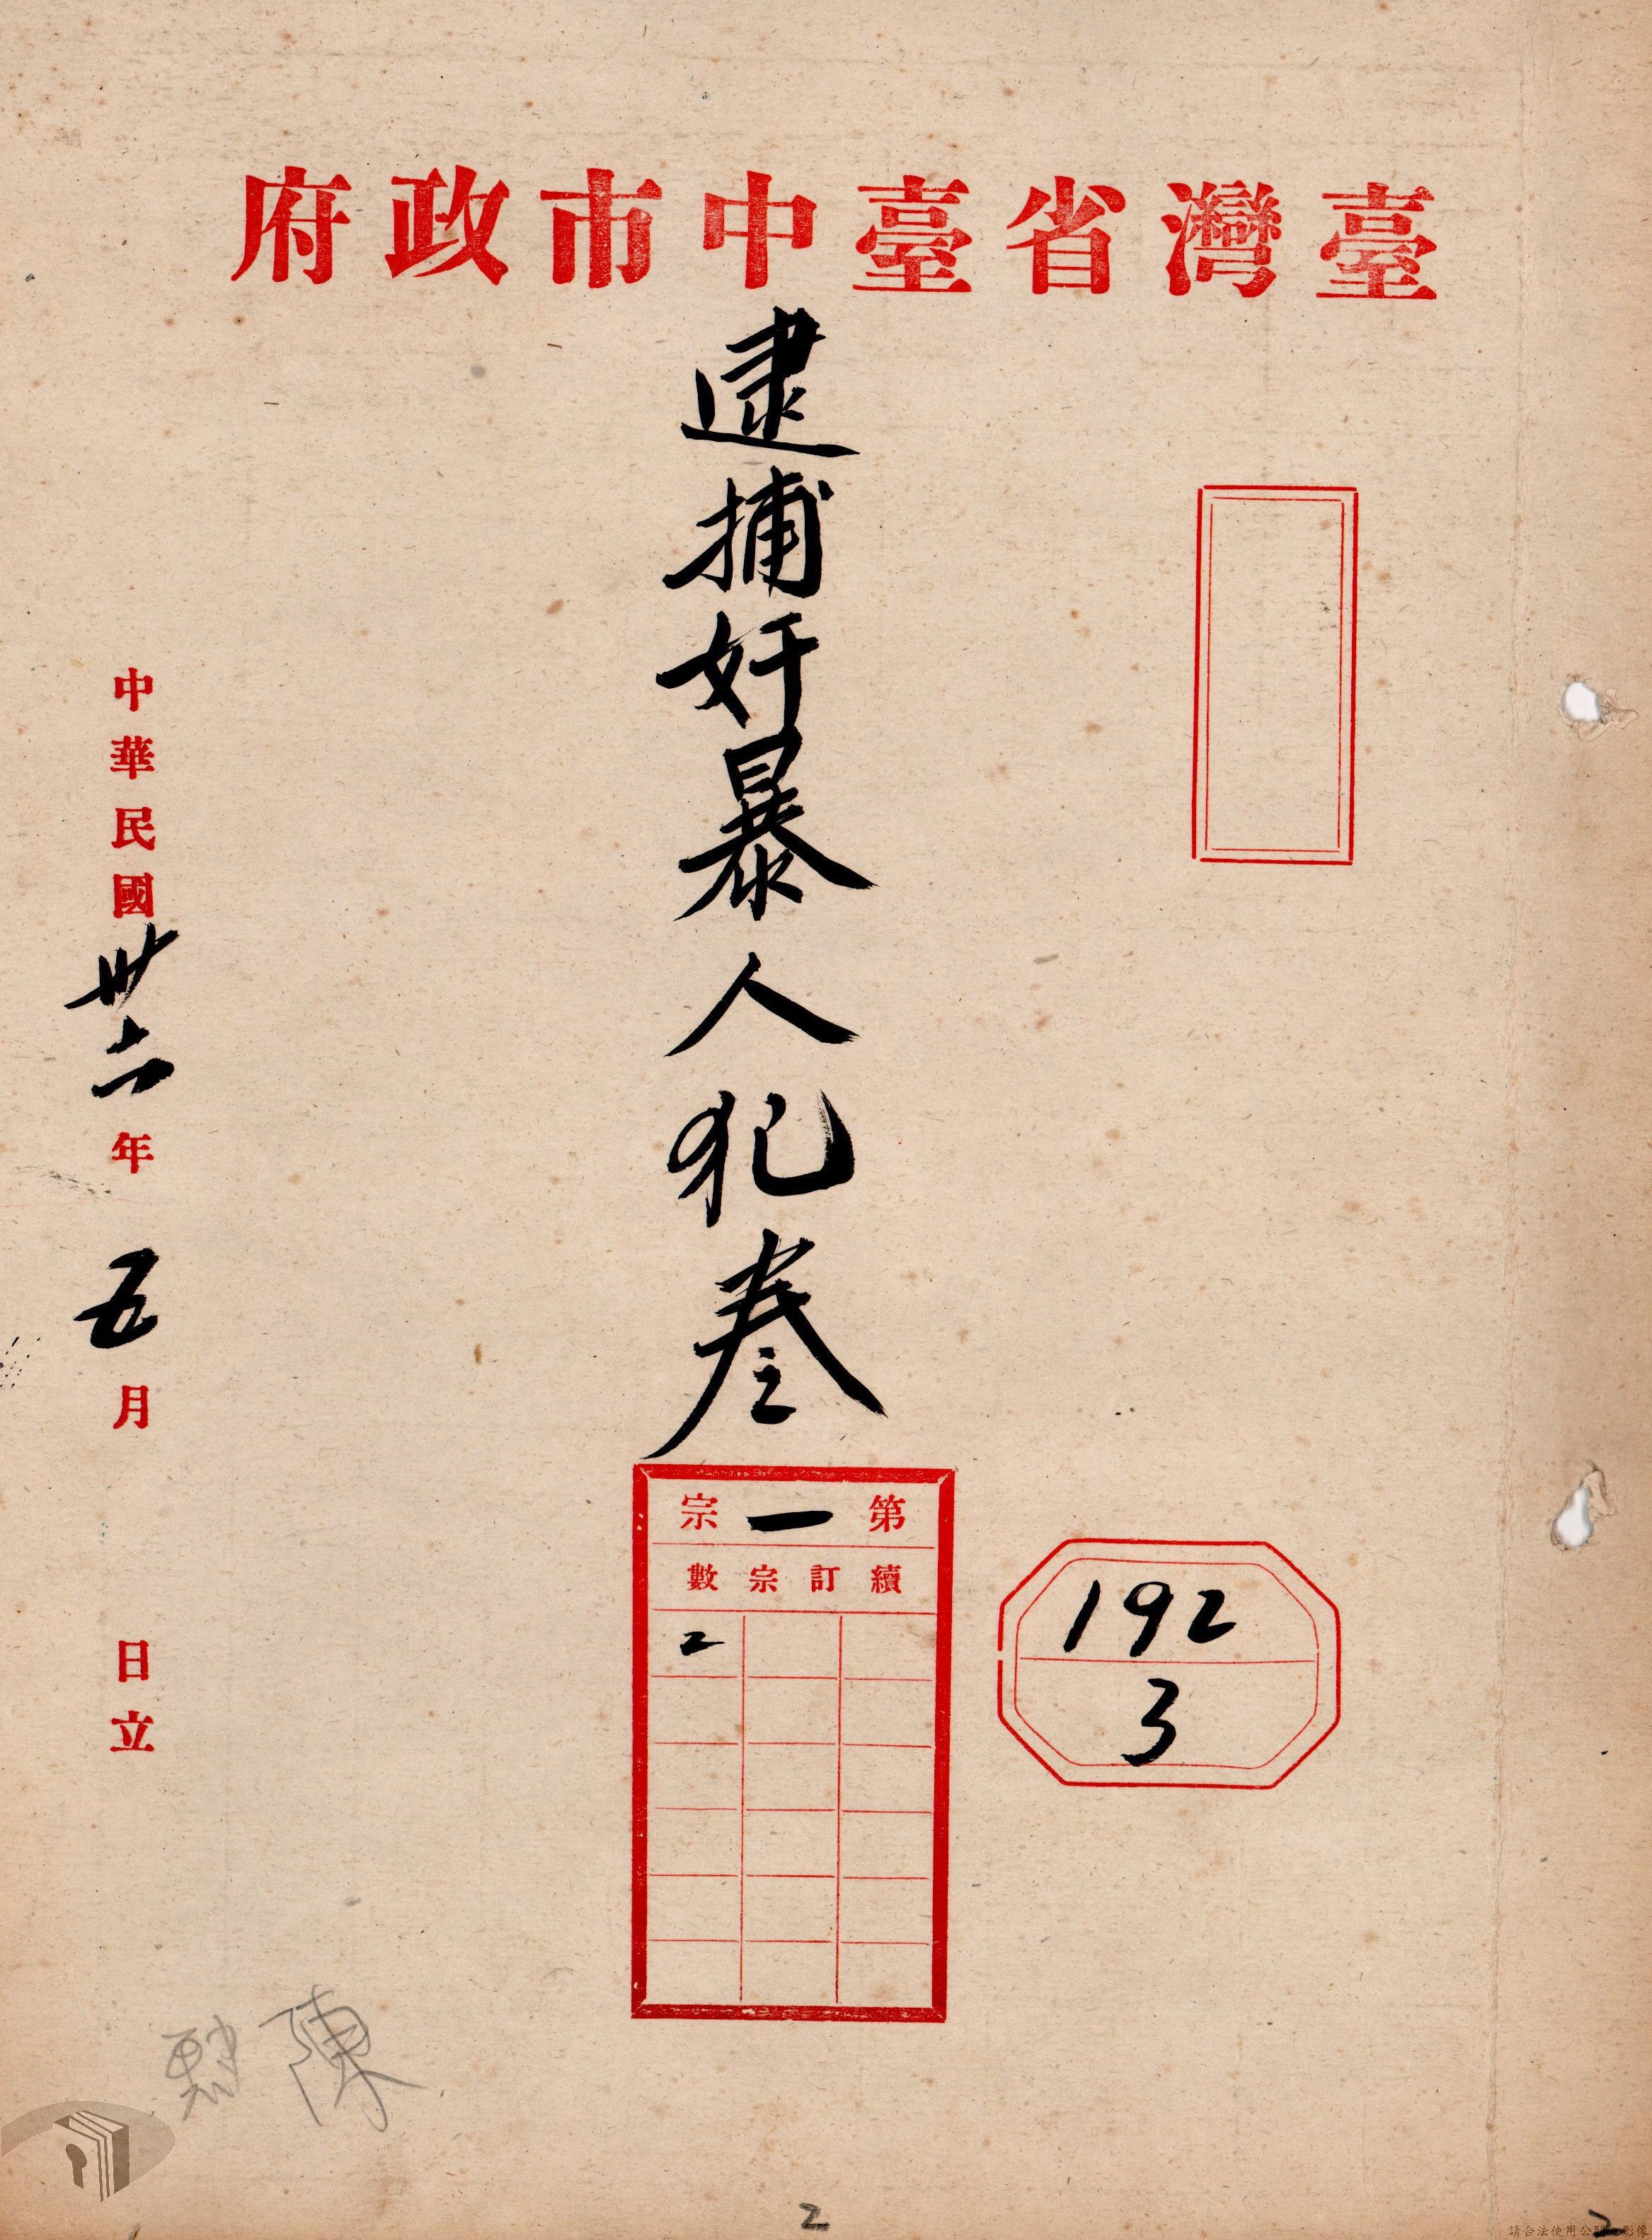 臺灣省臺中市政府
逮捕奸暴人犯卷
第一宗
續訂宗數
2
192
3
中華民國卅六年五月 日立
陳
2
2